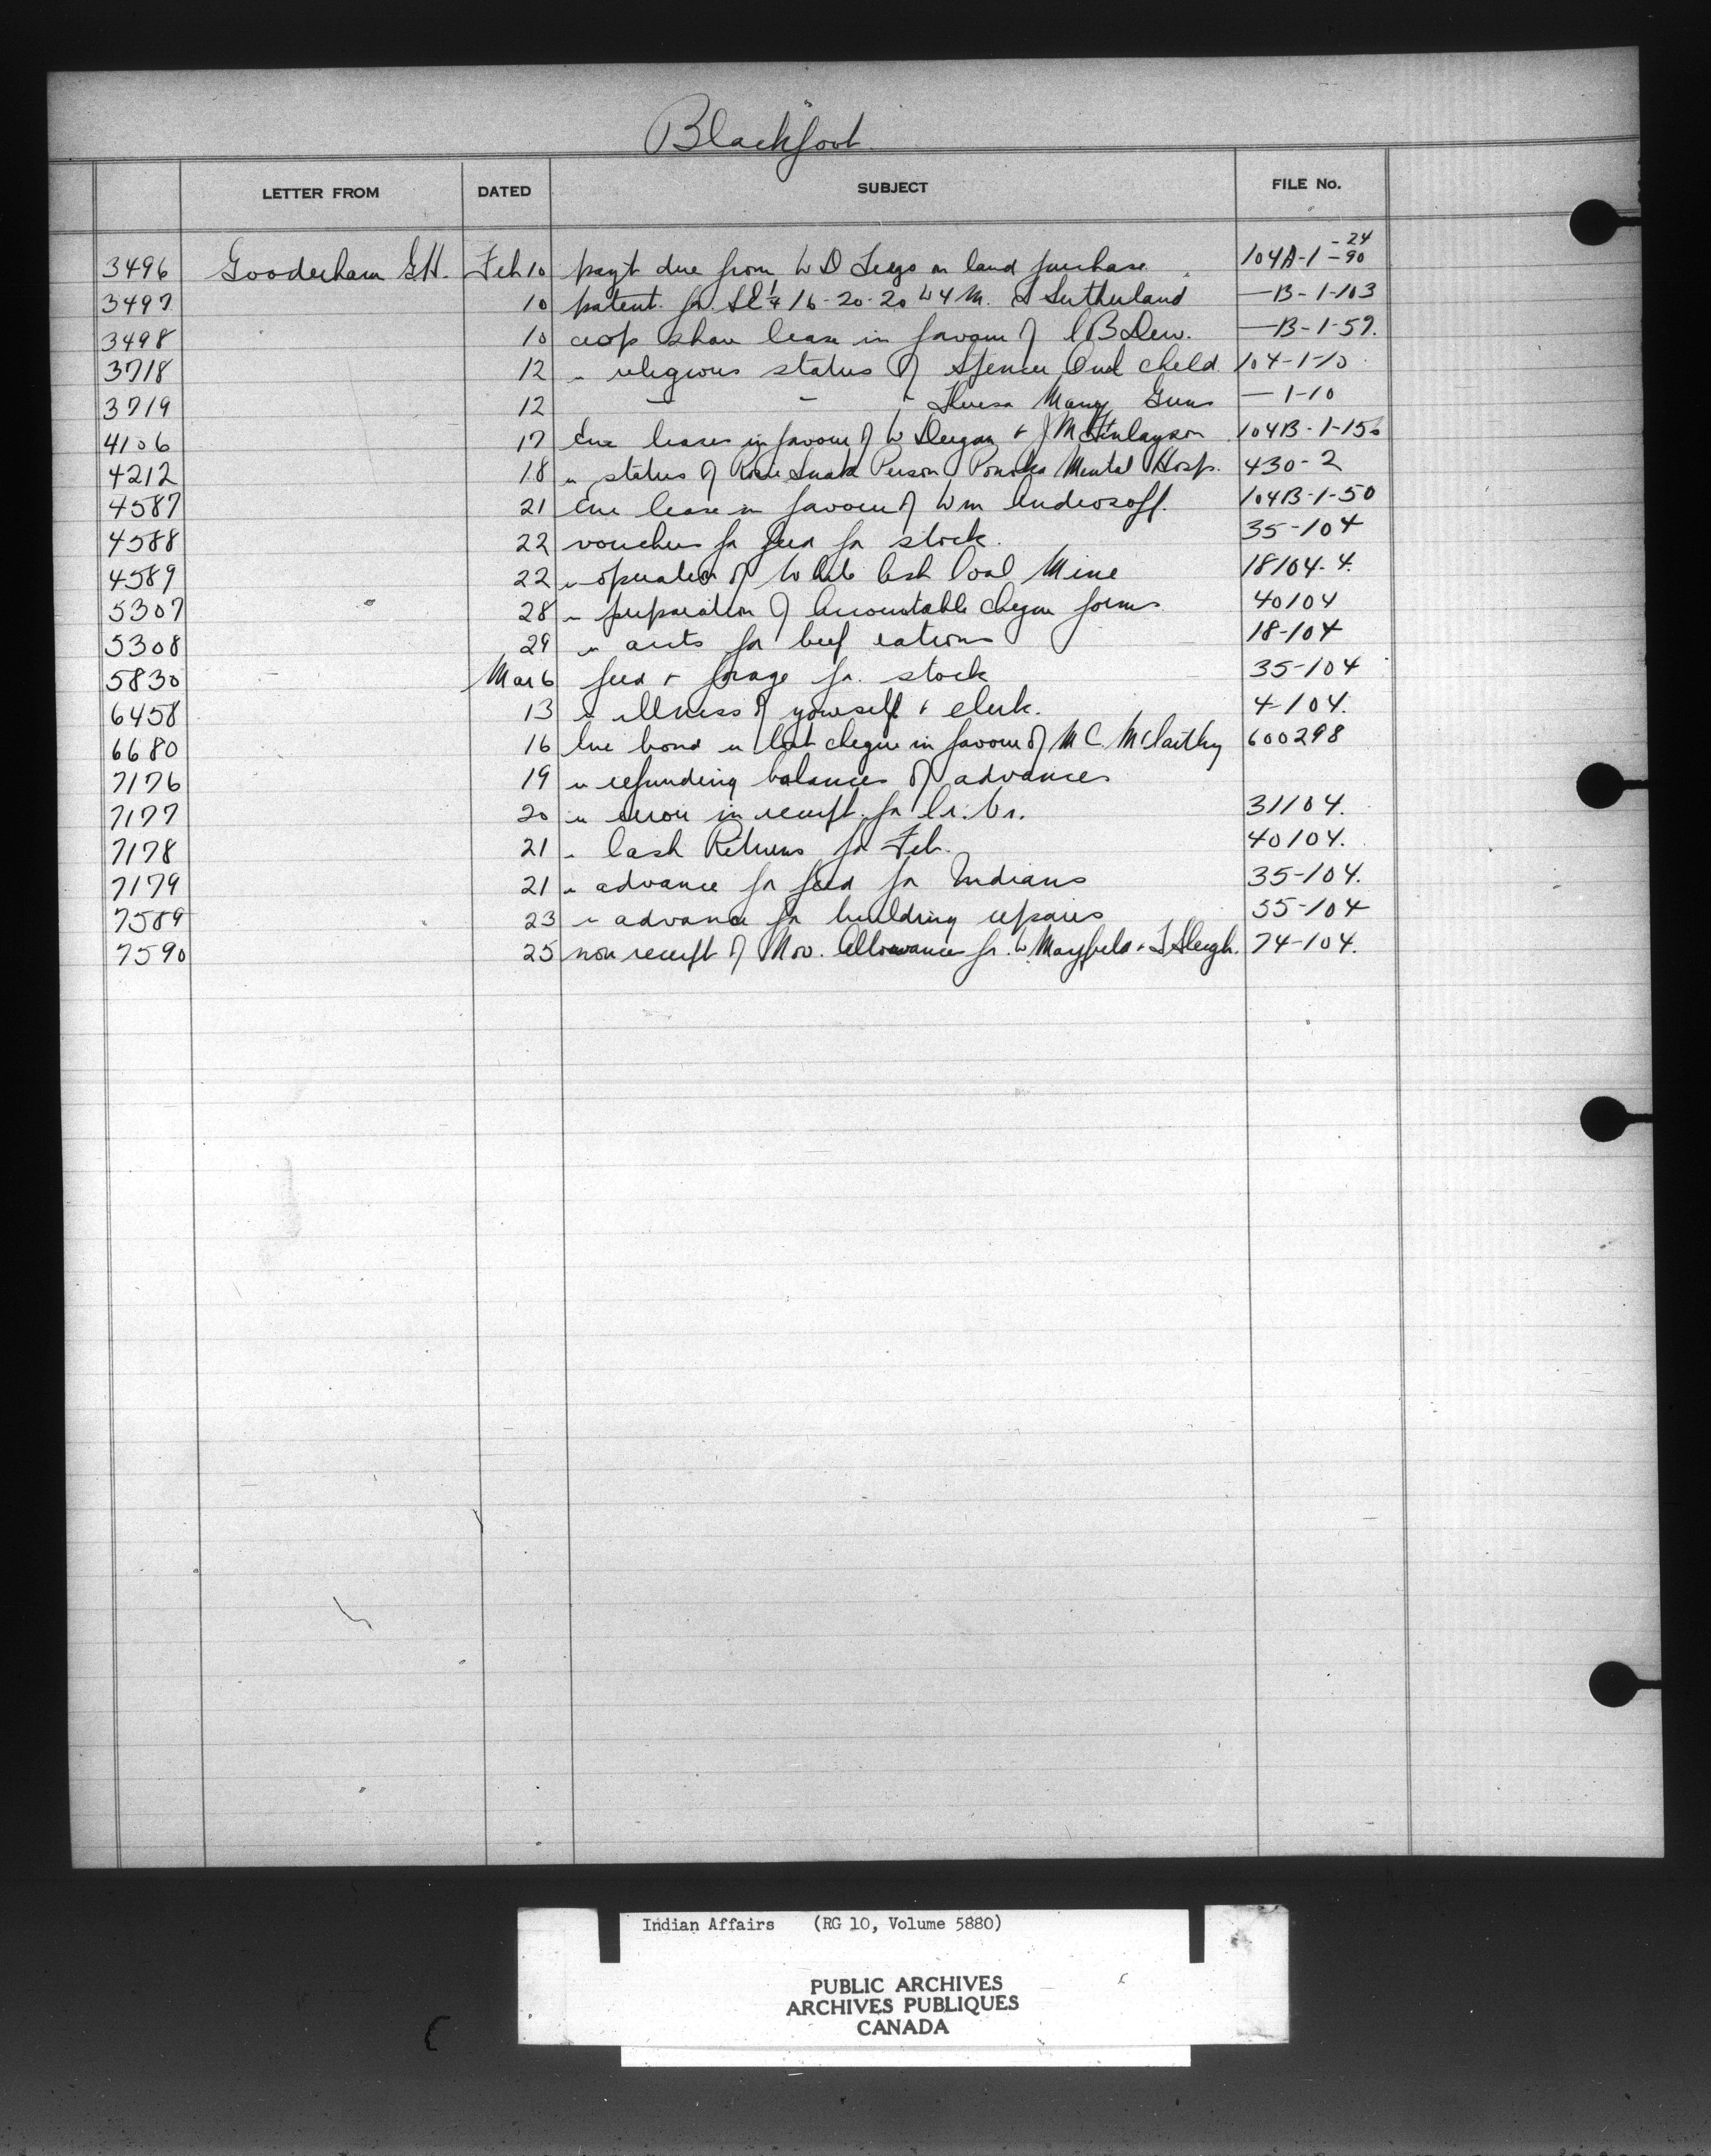 Blackfoot
LETTER FROM DATED SUBJECT FILE No.
3496 Gooderham G.H. Feb 10 payt due from W D on land purchase 104A-1 -24 -90
3497 10 patent for SE 1/4 16-20-20 W 4 M. Sutherland —B-1-103
3498 10 crop share lease in favour of C B Dew. —B-1-59.
3718 12 " religious status of Spencer Owl Child 104-1-10
3719 12 " " " Theresa Many Guns —1-10
4106 17 Enc leases in favour of W Deegan & J McFinlayson 104B-1-150
4212 18 " status of Snake Person Ponoka Mental Hosp. 430-2
4587 21 Enc lease in favour of Wm Androsoff. 104B-1-50
4588 22 vouchers for feed for stock. 35-104
4589 22 " operation of White Ash Coal Mine 18104-4.
5307 28 " preparation of Accountable cheque forms 40104
5308 29 " accts for beef rations 18-104
5830 Mar 6 feed & forage for stock 35-104
6458 13 " illness of yourself & clerk. 4-104.
6680 16 Enc bond " lost cheque in favour of M C McCarthy 600298
7176 19 " refunding balances of advances
7177 20 " error in receipt for Cr. Vr. 31104.
7178 21 " Cash Returns for Feb. 40104.
7179 21 " advance for feed for Indians 35-104.
7589 23 " advance for building repairs 55-104
7590 25 non receipt of Nov. Allowances for W Mayfield & Sleigh. 74-104.
Indian Affairs (RG 10, Volume 5880)
PUBLIC ARCHIVES
ARCHIVES PUBLIQUES
CANADA